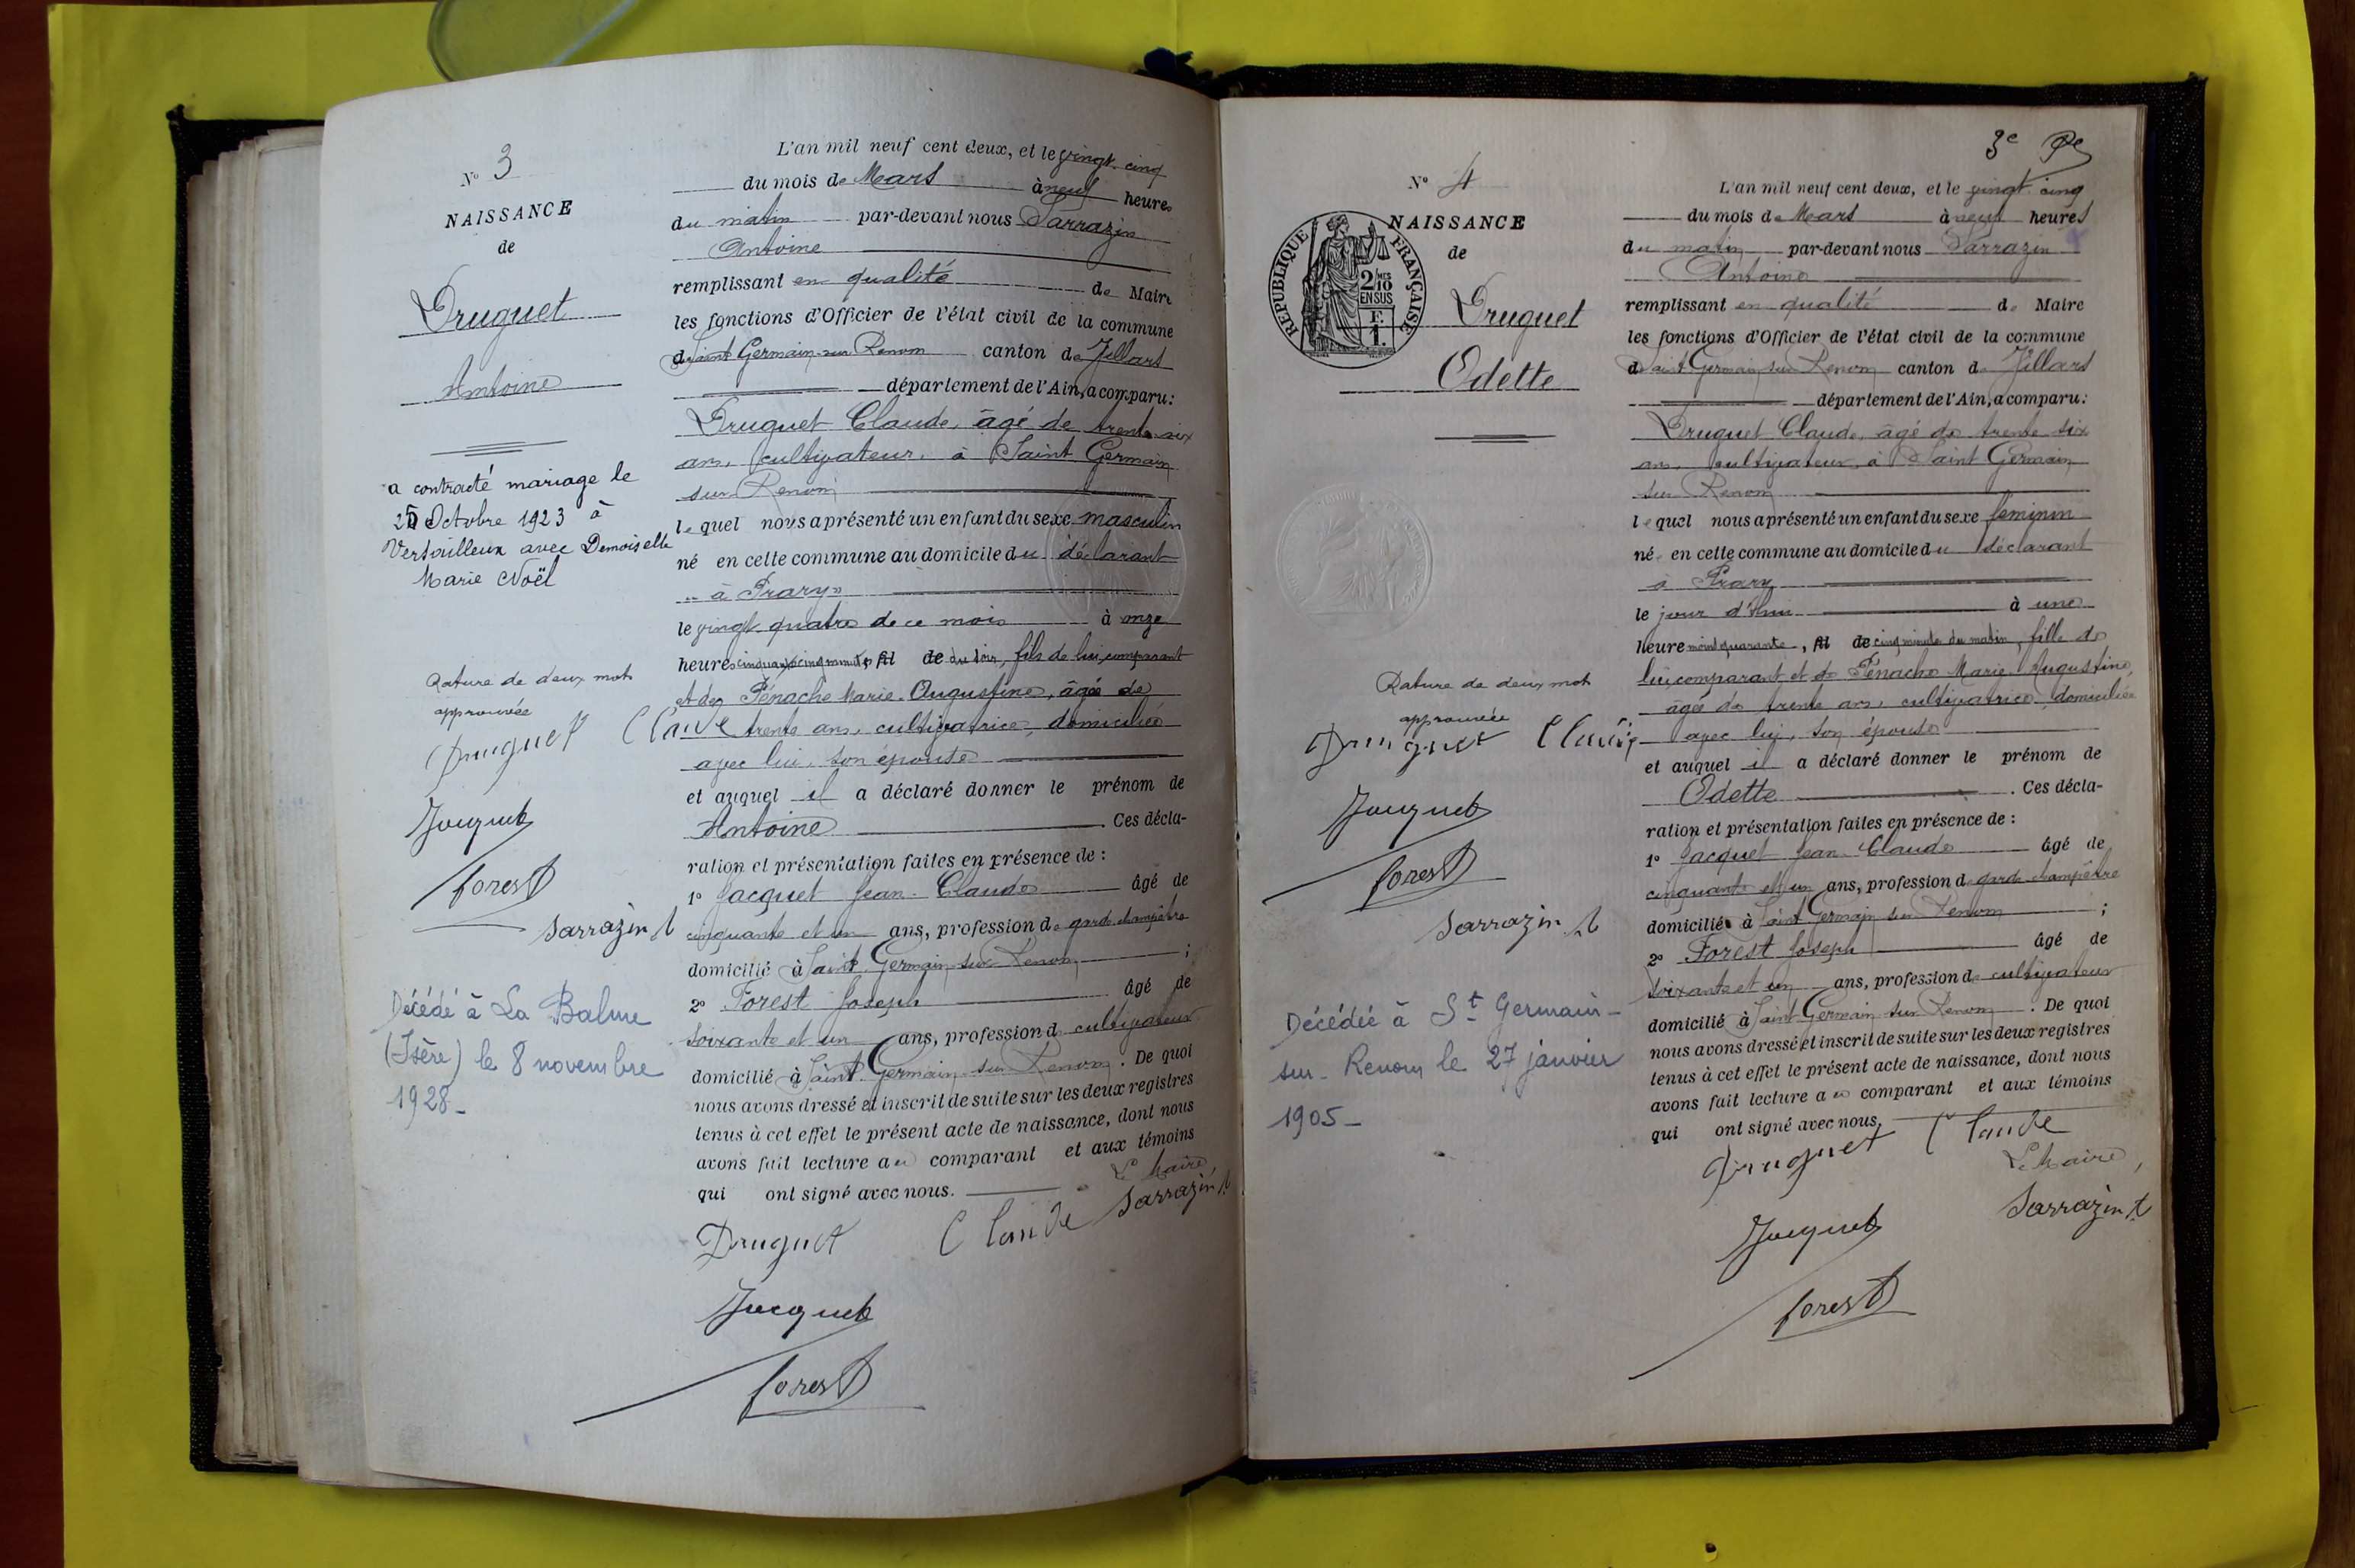 N° 3
NAISSANCE
de
Druguet
Antoine
a contracté mariage le
25 Octobre 1923 à
Versailleux avec Demoiselle
Marie Noël
Rature de deux mots
approuvée
Druguet Claude
Jacquet
forest
Sarrazin A
Décédé à La Balme
(Isère) le 8 novembre
1928_
L'an mil neuf cent deux, et le vingt cinq
du mois de Mars à neuf heures
du matin par-devant nous Sarrazin
Antoine
remplissant en qualité de Maire
les fonctions d'Officier de l'état civil de la commune
de Saint Germain-sur Renom canton de Villars
département de l'Ain, a comparu:
Druguet Claude, âgé de trente six
ans, cultivateur, à Saint Germain
sur Renom
lequel nous a présenté un enfant du sexe masculin
né en cette commune au domicile du déclarant
"à Prary"
le vingt quatre de ce mois à onze
heures cinquante cinq minutes fil de du soir, fils de lui, comparant
et de Pénache Marie-Augustine, âgée de
trente ans, cultivatrice, domiciliée
avec lui, son épouse
et auquel il a déclaré donner le prénom de
Antoine . Ces décla-
ration et présentation faites en présence de :
1° Jacquet Jean-Claude âgé de
cinquante et un ans, profession de garde champêtre
domicilié à Saint Germain sur Renom ;
2° Forest Joseph âgé de
soixante et un ans, profession de cultivateur
domicilié à Saint Germain sur Renom . De quoi
nous avons dressé et inscrit de suite sur les deux registres
tenus à cet effet le présent acte de naissance, dont nous
avons fait lecture au comparant et aux témoins
qui ont signé avec nous.
Le Maire
Sarrazin A
Druguet Claude
Jacquet
forest
3e
N° 4
NAISSANCE
de
REPUBLIQUE FRANÇAISE
2/10 MES
EN SUS
F.
1.
Druguet
Odette
Rature de deux mots
approuvée
Druguet Claude
Jacquet
forest
Sarrazin A
Décédée à St Germain-
sur-Renom le 27 janvier
1905_
L'an mil neuf cent deux, et le vingt cinq
du mois de Mars à neuf heures
du matin par-devant nous Sarrazin
Antoine
remplissant en qualité de Maire
les fonctions d'Officier de l'état civil de la commune
de Saint Germain sur Renom canton de Villars
département de l'Ain, a comparu:
Druguet Claude, âgé de trente six
ans, cultivateur, à Saint Germain
sur Renom
lequel nous a présenté un enfant du sexe féminin
né en cette commune au domicile du déclarant
à Prary
le jour d'hui à une
heure moins quarante, fil de cinq minutes du matin, fille de
lui, comparant et de Pénache Marie-Augustine,
âgée de trente ans, cultivatrice, domiciliée
avec lui, son épouse
et auquel il a déclaré donner le prénom de
Odette . Ces décla-
ration et présentation faites en présence de :
1° Jacquet Jean-Claude âgé de
cinquante et un ans, profession de garde champêtre
domicilié à Saint Germain sur Renom ;
2° Forest Joseph âgé de
soixante et un ans, profession de cultivateur
domicilié à Saint Germain sur Renom . De quoi
nous avons dressé et inscrit de suite sur les deux registres
tenus à cet effet le présent acte de naissance, dont nous
avons fait lecture au comparant et aux témoins
qui ont signé avec nous.
Druguet Claude
Le Maire,
Sarrazin A
Jacquet
forest